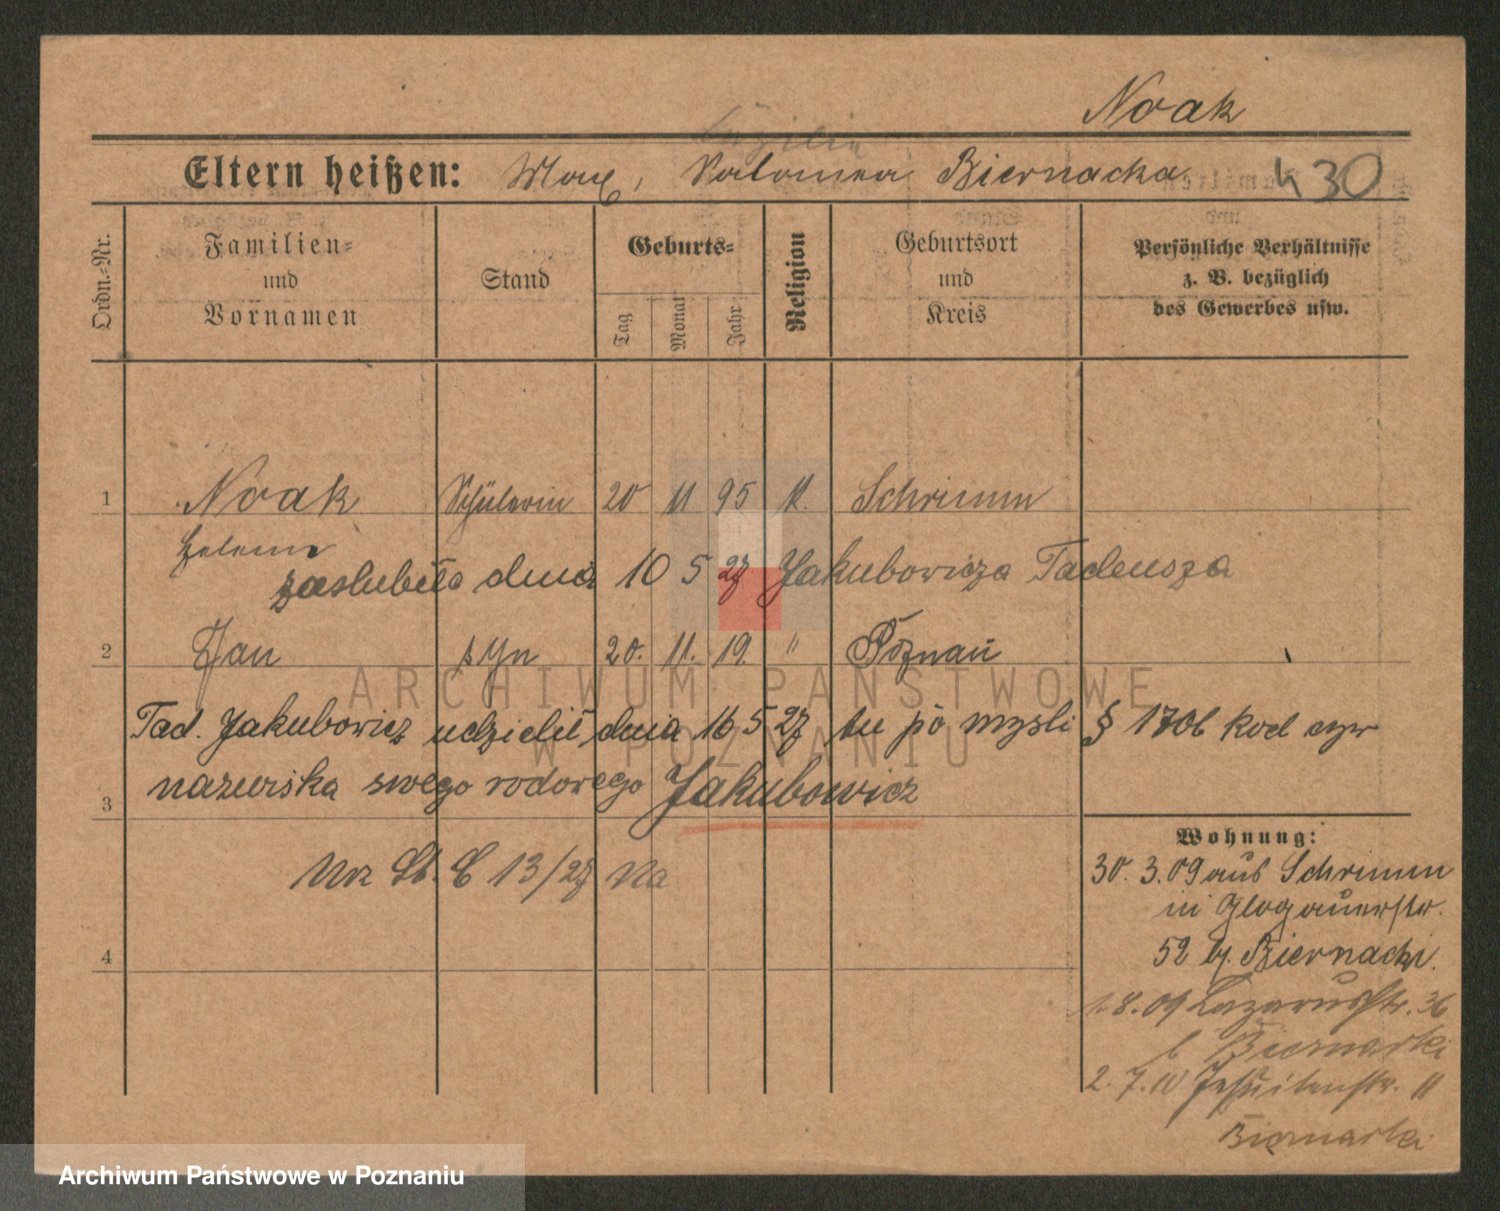 Noak
Eltern heißen: Max, Salomea Biernacka 430
Ordn.-Nr.
Familien- und Vornamen
Stand
Geburts-
Tag
Monat
Jahr
Religion
Geburtsort und Kreis
Persönliche Verhältnisse
z. B. bezüglich
des Gewerbes usw.
1 Noak Schülerin 20 11 95 K. Schrimm
Helene
zaslubiła dnia 10 5 27 Jakubowicza Tadeusza
2 Jan syn 20. 11. 19. " Poznań
ARCHIWUM PAŃSTWOWE
W POZNANIU
Tad. Jakubowicz udzielił dnia 16 5 27 tu po mysli § 1706 kod cyw
3 nazwiska swego rodowego Jakubowicz
Urz St. C 13/27 Na
4
Wohnung:
30. 3. 09 aus Schrimm
in Glogauerstr.
52 b. Biernacki.
1. 8. 09 Lazarusstr. 36
b Biernacki
2. 7. 10 Jesuitenstr. 11
Biernacki
Archiwum Państwowe w Poznaniu